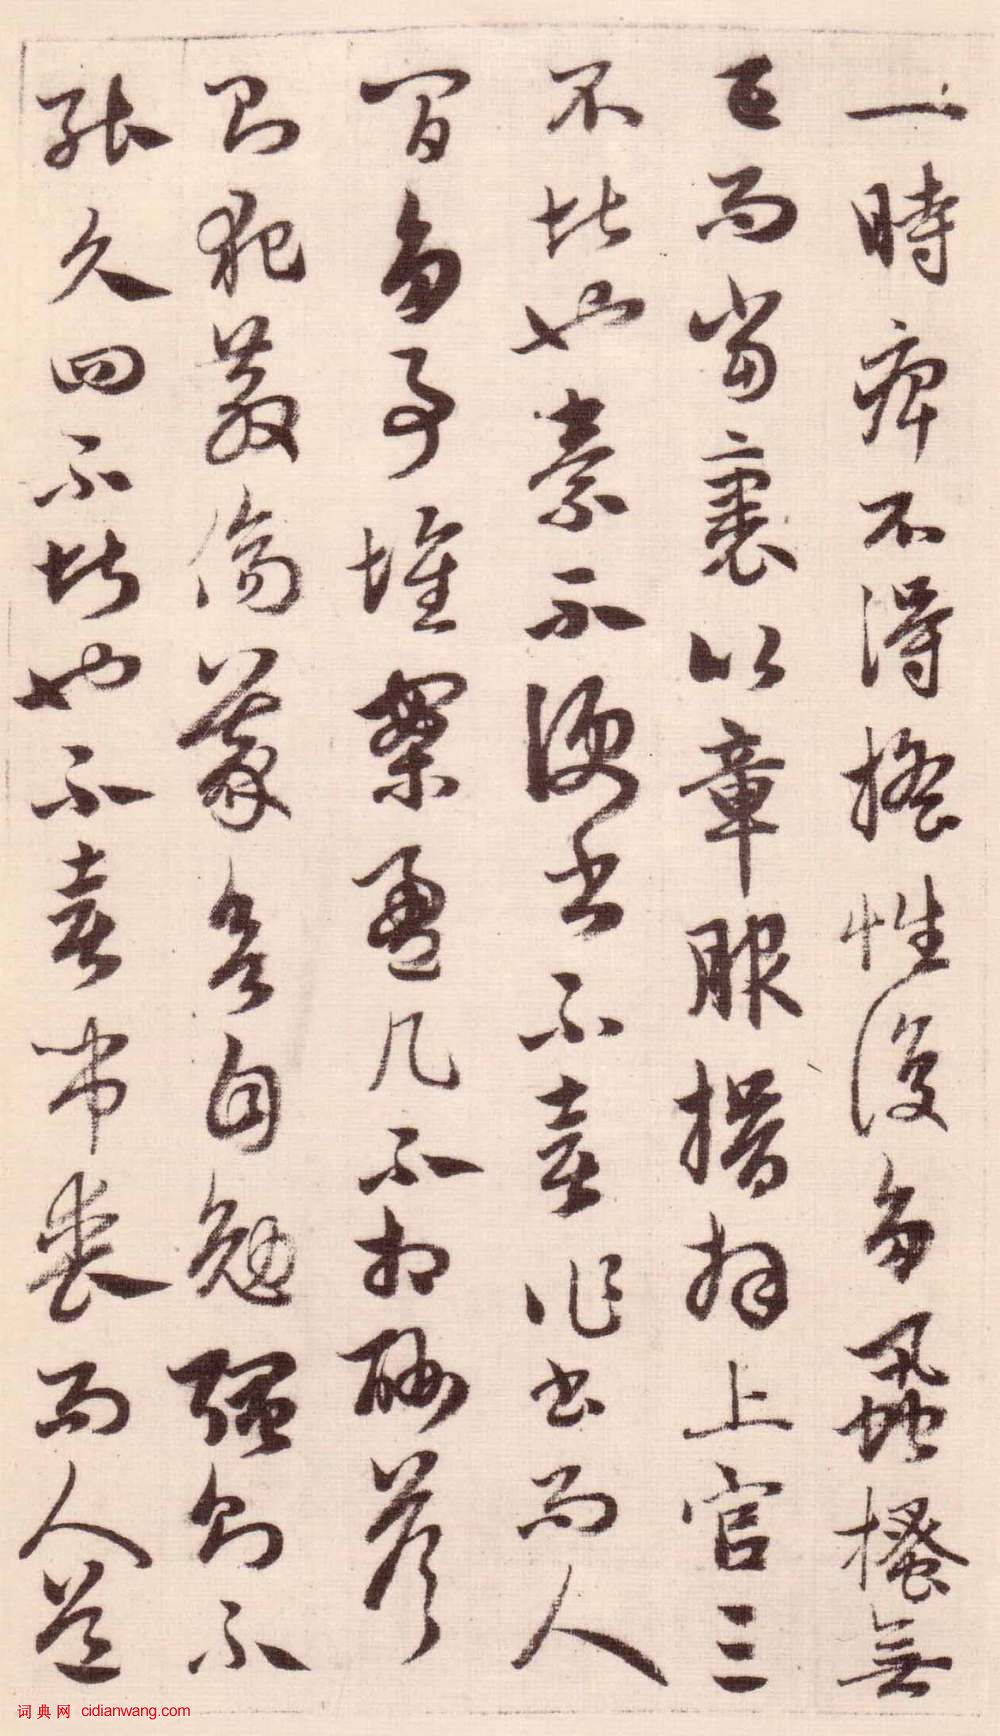 一時痺不得搖性復多蝨搔無
已而當裹以章服揖拜上官三
不堪也素不便書不喜作書而人
間多事堆案盈几不相酬答
則犯教傷義欲自勉強則不
能久四不堪也不喜弔喪而人道
词典网 cidianwang.com